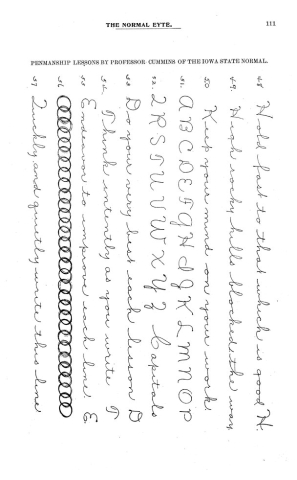 THE NORMAL EYTE. 111
PENMANSHIP LESSONS BY PROFESSOR CUMMINS OF THE IOWA STATE NORMAL.
48 Hold fast to that which is good H.
49. High rocky hills blocked the way
50 Keep your mind on your work
51. A B C D E F G H I J K L M N O P
52. Q R S T U V W X Y Z Capitals
53 Do your very best each lesson D
54 Think intently as you write T
55 Endeavor to improve each line E
56 OOOOOOOOOOOOOOOOOOOOOOO
57 Quickly and quietly write this line